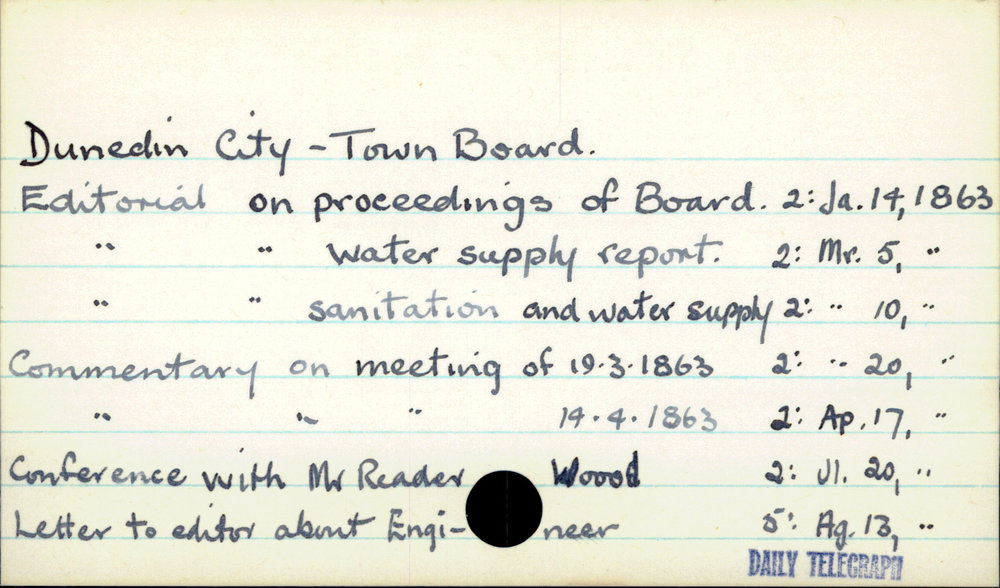 Dunedin City - Town Board.
Editorial on proceedings of Board. 2: Ja. 14, 1863
" " water supply report. 2: Mr. 5, "
" " sanitation and water supply 2: " 10, "
Commentary on meeting of 19.3.1863 2: " 20, "
" " " 14.4.1863 2: Ap. 17, "
Conference with Mr Reader Woood 2: Jl. 20, "
Letter to editor about Engi- neer 5: Ag. 13, "
DAILY TELEGRAPH